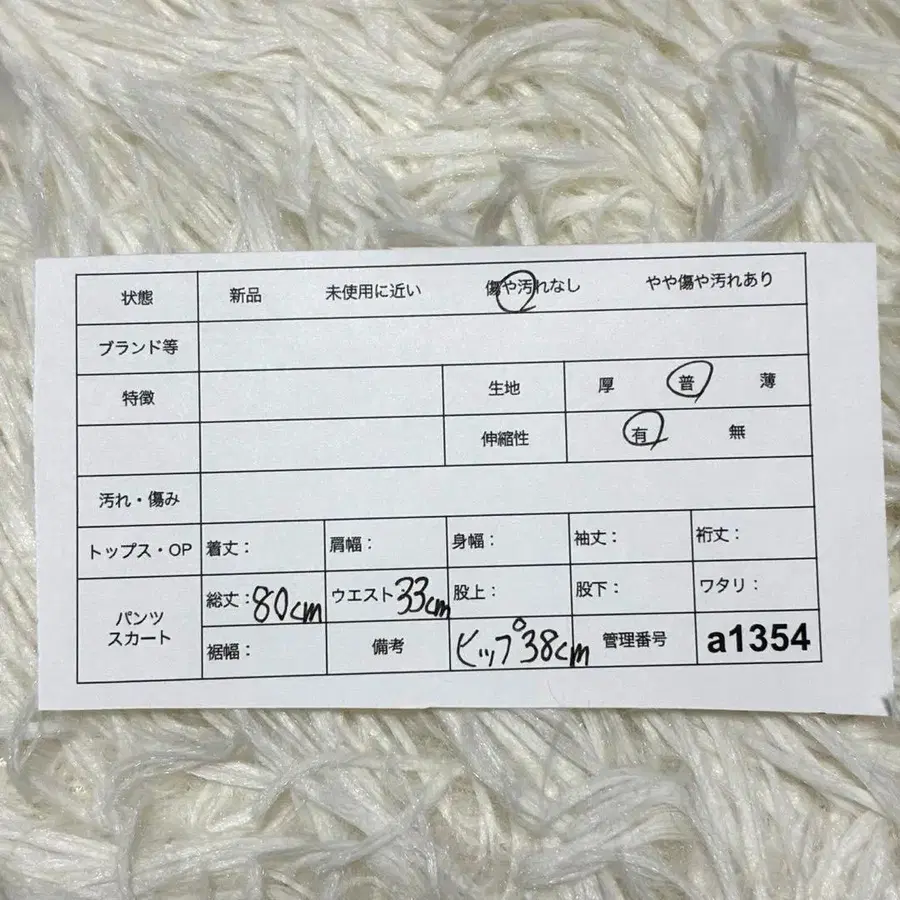 状態 新品 未使用に近い 傷や汚れなし やや傷や汚れあり
ブランド等
特徴 生地 厚 普 薄
伸縮性 有 無
汚れ・傷み
トップス・OP 着丈： 肩幅： 身幅： 袖丈： 裄丈：
パンツ スカート 総丈：80cm ウエスト33cm 股上： 股下： ワタリ：
裾幅： 備考 ヒップ38cm 管理番号 a1354